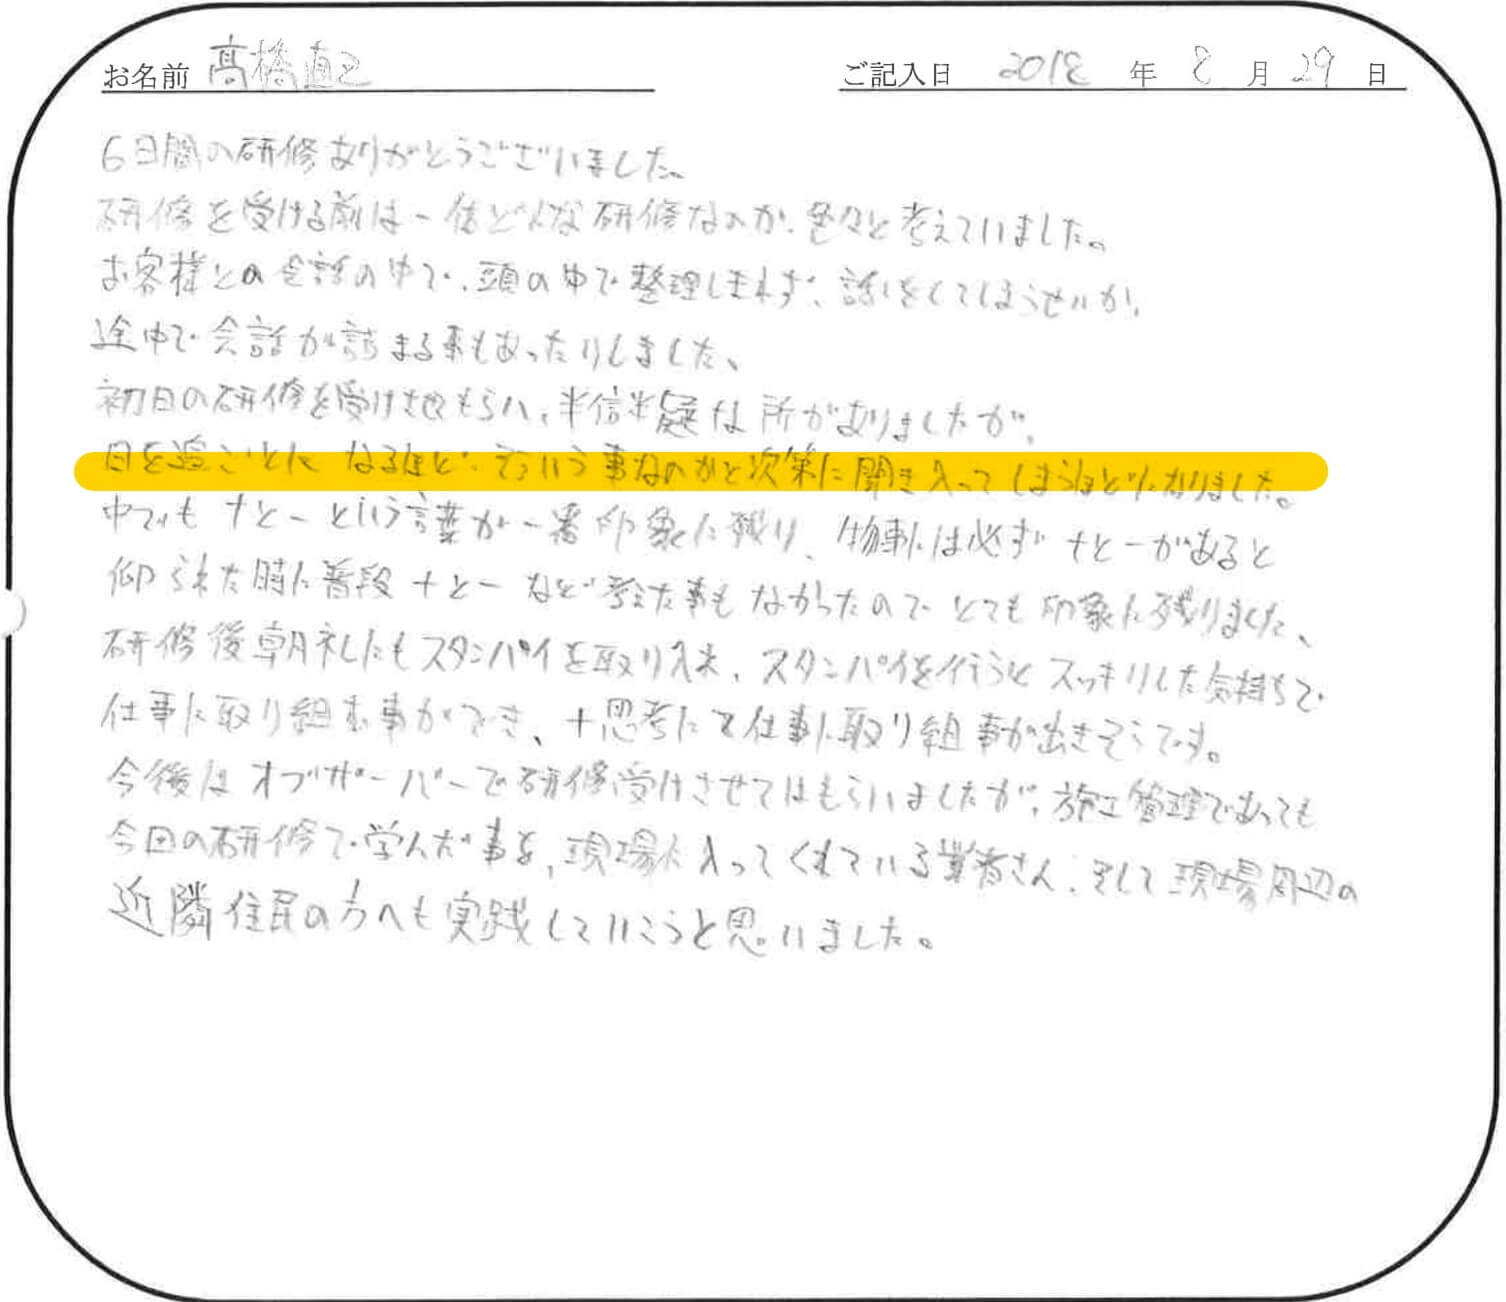 お名前 髙橋直己 ご記入日 2018 年 8 月 29 日
6日間の研修ありがとうございました。
研修を受ける前は一体どんな研修なのか、色々と考えていました。
お客様との会話の中で、頭の中で整理しきれず、話しをしてしまうせいか、
途中で会話が詰まる事もあったりしました。
初日の研修を受けさせもらい、半信半疑な所がありましたが、
日を追ごとに なるほど、そういう事なのかと次第に聞き入ってしまうほどになりました。
中でも +と- という言葉が一番印象に残り、物事には必ず +と-があると
仰られた時に普段 +と- など考えた事もなかったので とても印象に残りました。
研修後朝礼したもスタンバイを取り入れ、スタンバイを行うとスッキリした気持ちで
仕事に取り組む事ができ、+思考にて仕事に取り組事が出きそうです。
今後は オブザーバーで研修受けさせてはもらいましたが、施工管理であっても
今回の研修で学んだ事を、現場に入ってくれている業者さん、そして現場周辺の
近隣住民の方へも実践していこうと思いました。